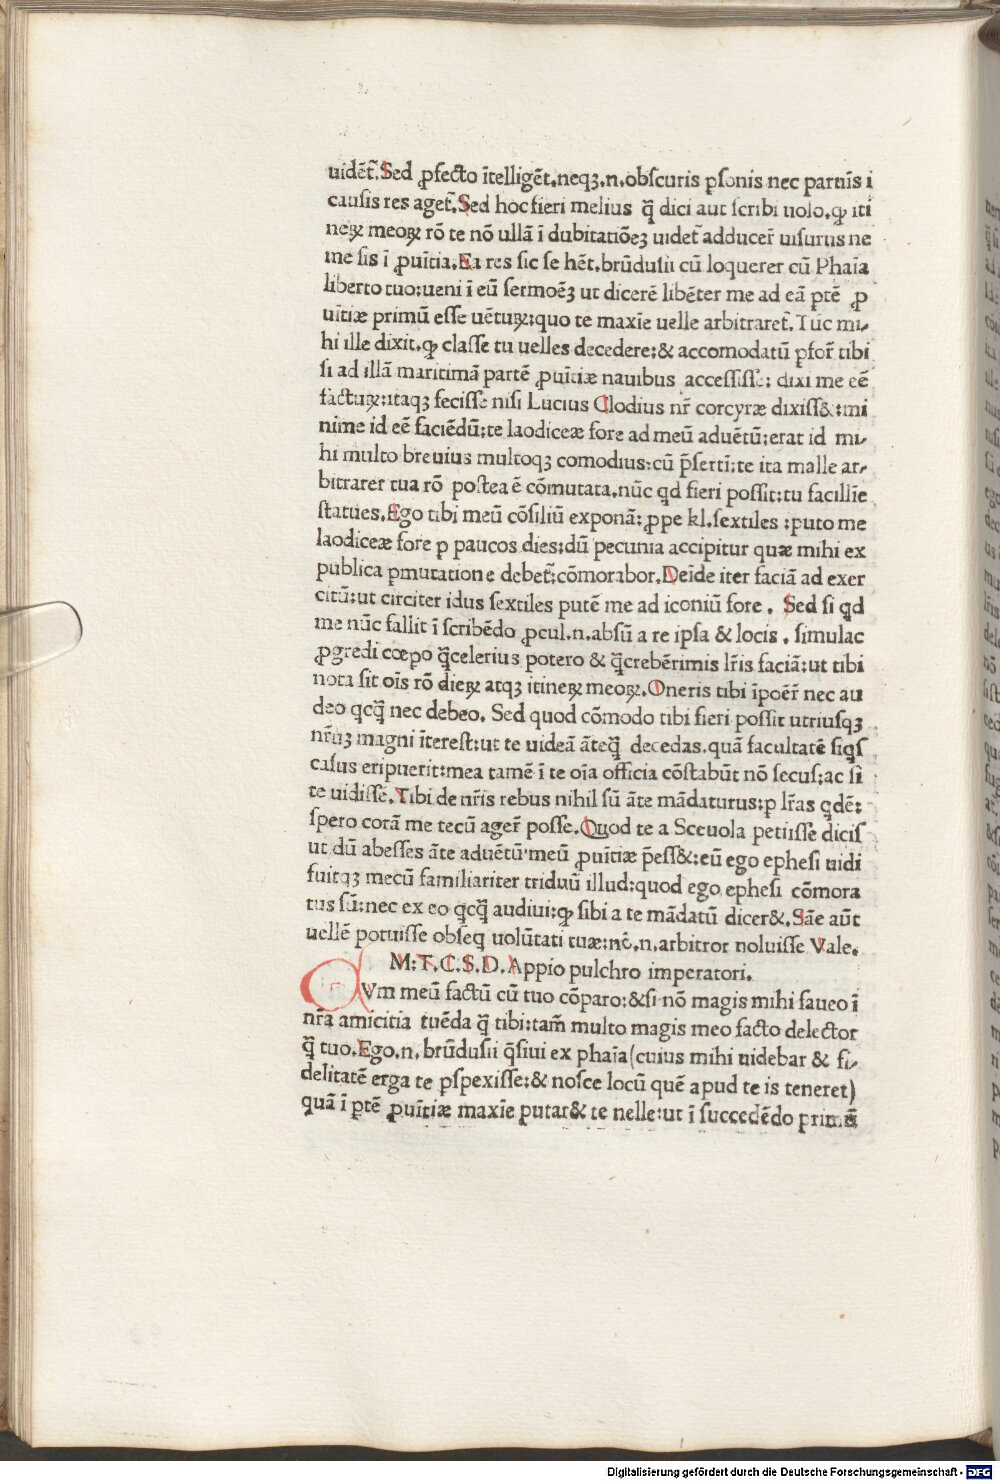 uidēt̃.Sed ꝓfecto ītelligēt.neqꝫ.n.obscuris ꝑsonis nec paruis i
causis res aget̃.Sed hoc fieri melius q̄̃ dici aut scribi uolo.ꝙ iti
neꝝ meoꝝ rō te nō ullā ī dubitatiōeꝫ uidet̃ adducer̃ uisurus ne
me sis ī ꝓuītia.Ea res sic se hēt.brūdusii cū loquerer cū Phaīa
liberto tuo:ueni ī eū sermoēꝫ ut dicerē libēter me ad eā ꝑtē ꝓ
uītiæ primū esse uētuꝝ:quo te maxīe uelle arbitraret̃.Tūc mi⸗
hi ille dixit.ꝙ classe tu uelles decedere:& accomodatū ꝑfor̃ tibi
si ad illā maritimā partē ꝓuītiæ nauibus accessisse: dixi me eē
factuꝝ:itaqꝫ fecisse nisi Lucius Clodius nr̄ corcyræ dixiss&:mi
nime id eē faciēdū:te laodiceæ fore ad meū aduētū:erat id mi⸗
hi multo breuius multoqꝫ comodius:cū p̄sertī:te ita malle ar⸗
bitrarer tua rō postea ē cōmutata.nūc qd fieri possit:tu facillīe
statues.Ego tibi meū cōsiliū exponā: ꝓpe kl.sextiles :puto me
laodiceæ fore ꝑ paucos dies:dū pecunia accipitur quæ mihi ex
publica ꝑmutatione debet̃:cōmorabor.Deīde iter faciā ad exer
citū:ut circiter idus sextiles putē me ad iconiū fore . Sed si qd
me nūc fallit ī scribēdo ꝓcul.n.absū a re ipsa & locis . simulac
ꝓgredi cœpo q̄̃celerius potero & q̄̃crebērimis lr̄is faciā:ut tibi
nota sit oīs rō dieꝝ atqꝫ itineꝝ meoꝝ.Oneris tibi īpoēr̃ nec au
deo qcq̄̃ nec debeo. Sed quod cōmodo tibi fieri possit utriusqꝫ
nr̄ūꝫ magni īterest:ut te uideā āteq̄̃ decedas.quā facultatē siqs
casus eripuerit:mea tamē ī te oīa officia cōstabūt nō secus:ac si
te uidissē.Tibi de nr̄is rebus nihil sū āte mādaturus:ꝑ lr̄as qdē:
spero corā me tecū ager̃ posse.Quod te a Sceuola petiisse dicis
ut dū abesses āte aduētū meū ꝓuītiæ p̄ess&:eū ego ephesi uidi
fuitqꝫ mecū familiariter triduū illud:quod ego ephesi cōmora
tus sū:nec ex eo qcq̄̃ audiui:ꝙ sibi a te mādatū dicer&.Sāe aūt
uellē potuisse obseq uolūtati tuæ:nō.n.arbitror noluisse Vale.
M:T.C.S.D.Appio pulchro imperatori.
CVm meū factū cū tuo cōparo:&si nō magis mihi faueo ī
nr̄a amicitia tuēda q̄̃ tibi:tam̄ multo magis meo facto delector
q̄̃ tuo.Ego.n. brūdusii q̄siui ex phaīa(cuius mihi uidebar & fi⸗
delitatē erga te ꝑspexisse:& nosce locū quē apud te is teneret)
quā ī ꝑtē ꝓuītiæ maxīe putar& te nelle:ut ī succedēdo primū
Digitalisierung gefördert durch die Deutsche Forschungsgemeinschaft - DFG